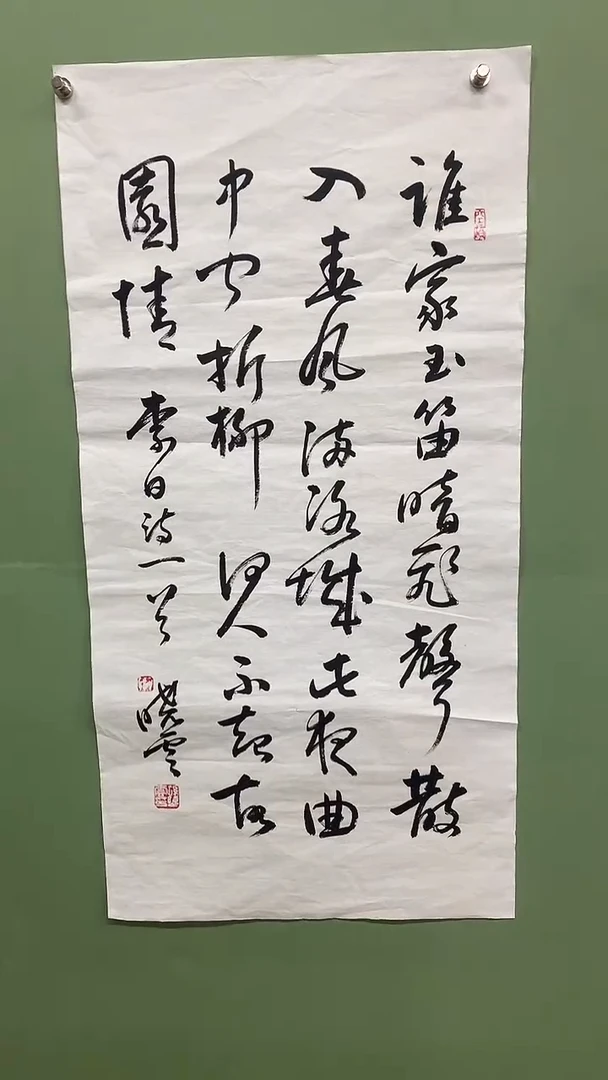 誰家玉笛暗飛聲散
入春风满洛城此夜曲
中闻折柳何人不起故
園情 李白诗一首 晓云